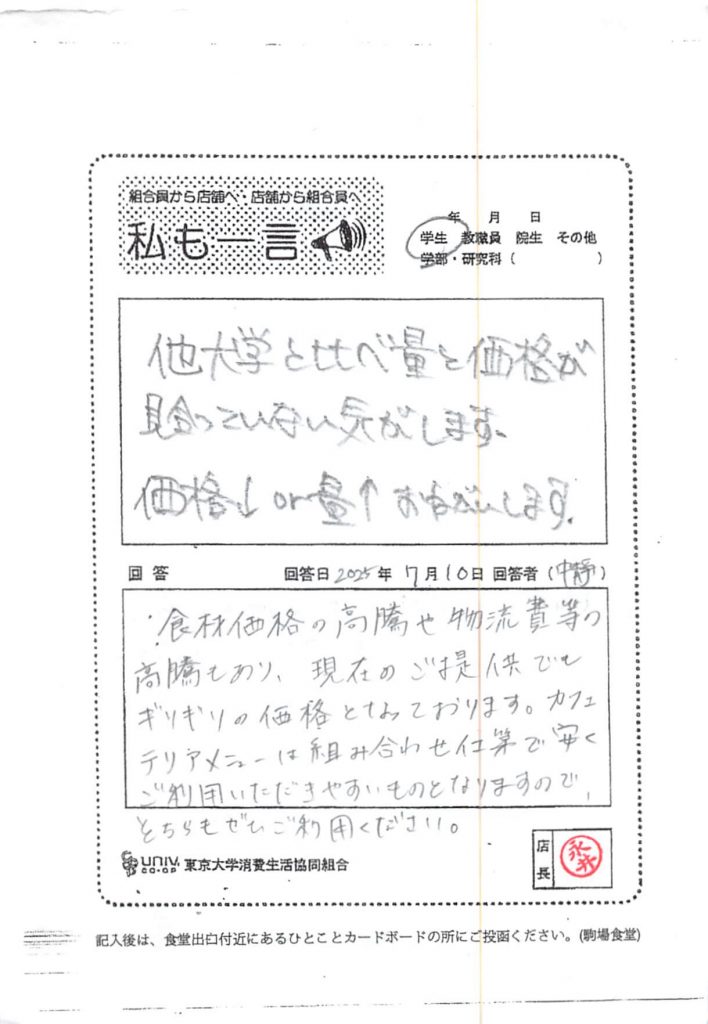 組合員から店舗へ・店舗から組合員へ
私も一言
年 月 日
学生 教職員 院生 その他
学部・研究科 ( )
他大学と比べ量と価格が
見合っていない気がします。
価格↓ or 量↑ おねがいします。
回答 回答日 2025年 7月10日 回答者 (中静)
・食材価格の高騰や物流費等の
高騰もあり、現在のご提供でも
ギリギリの価格となっております。カフェ
テリアメニューは組み合わせ仕第で安く
ご利用いただきやすいものとなりますので、
どちらもぜひご利用ください。
UNIV. CO-OP 東京大学消費生活協同組合
店長 永井
記入後は、食堂出口付近にあるひとことカードボードの所にご投函ください。(駒場食堂)